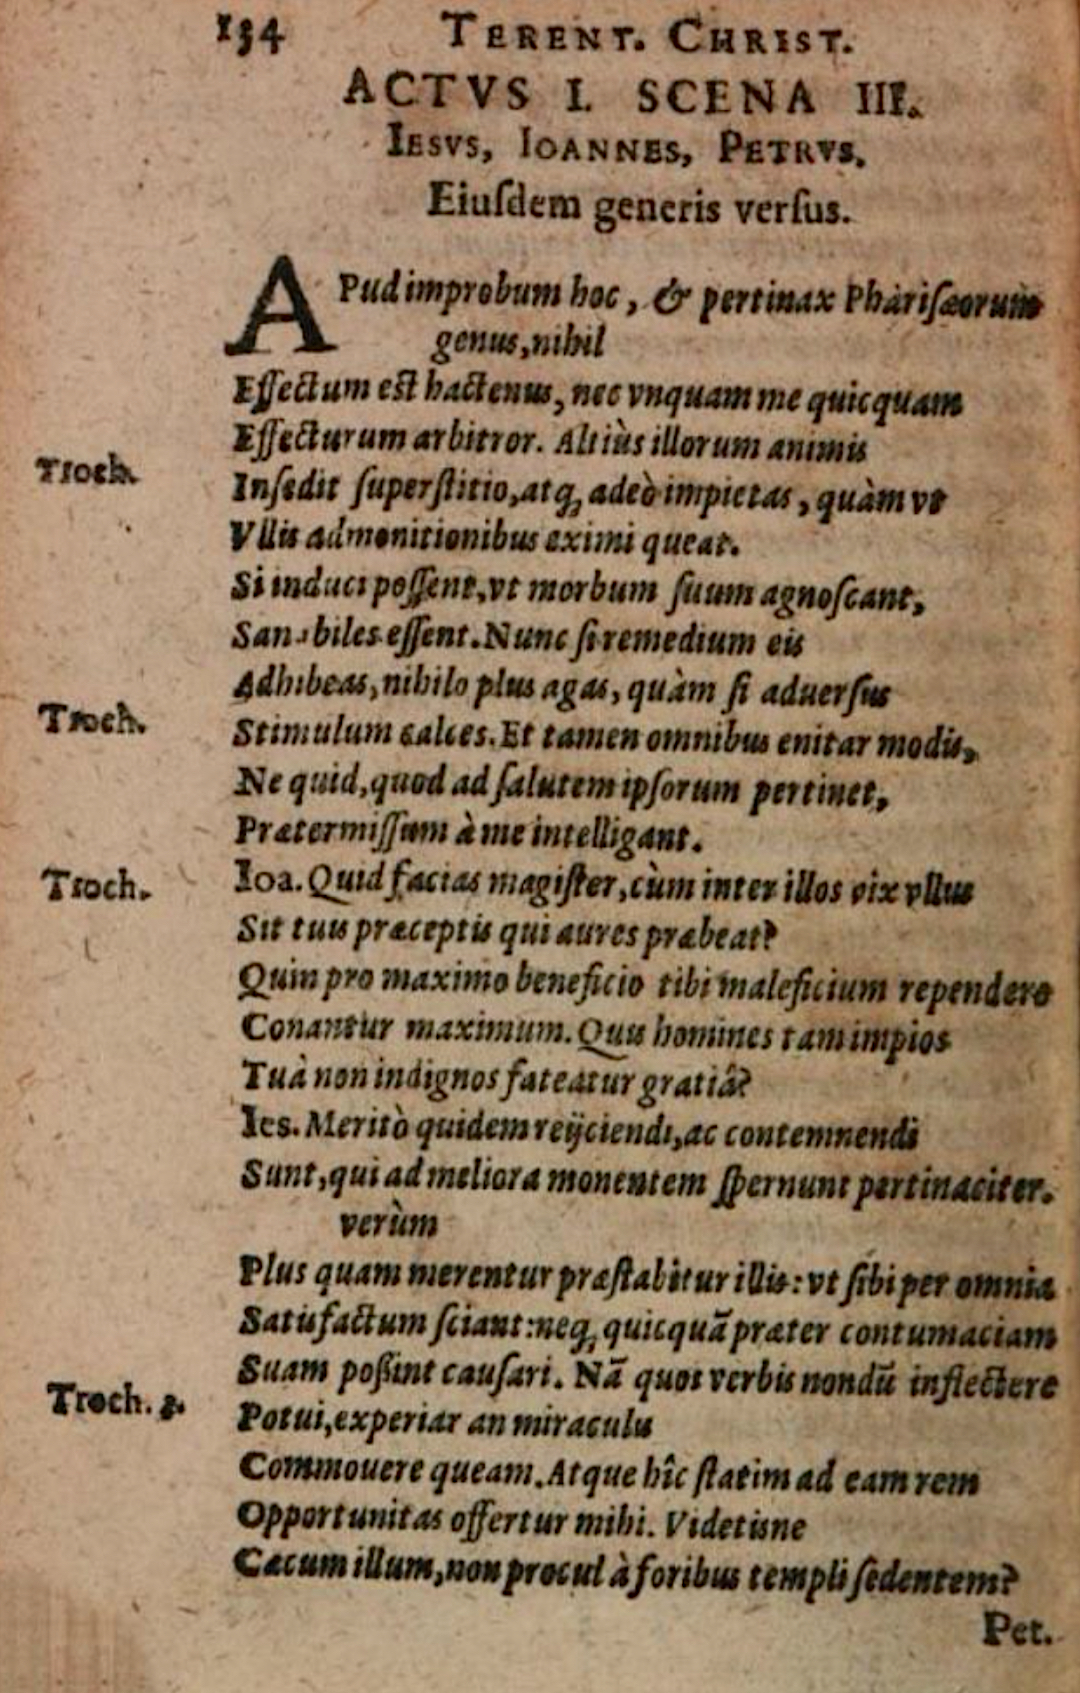 134 TERENT. CHRIST.
ACTVS I. SCENA III.
IESVS, IOANNES, PETRVS.
Eiuſdem generis verſus.
APud improbum hoc, & pertinax Phariſæorum
genus, nihil
Effectum eſt hactenus, nec vnquam me quicquam
Effecturum arbitror. Altiùs illorum animis
Troch.
Inſedit ſuperſtitio, atq; adeò impietas, quàm vt
Vllis admonitionibus eximi queat.
Si induci poſſent, vt morbum ſuum agnoſcant,
Sanabiles eſſent. Nunc ſi remedium eis
Adhibeas, nihilo plus agas, quàm ſi aduerſus
Troch.
Stimulum calces. Et tamen omnibus enitar modis,
Ne quid, quod ad ſalutem ipſorum pertinet,
Prætermiſſum à me intelligant.
Troch.
Ioa. Quid facias magiſter, cùm inter illos vix vllus
Sit tuis præceptis qui aures præbeat?
Quin pro maximo beneficio tibi maleficium rependere
Conantur maximum. Quis homines tam impios
Tuâ non indignos fateatur gratiâ?
Ies. Meritò quidem reijciendi, ac contemnendi
Sunt, qui ad meliora monentem ſpernunt pertinaciter.
verùm
Plus quam merentur præſtabitur illis: vt ſibi per omnia
Satisfactum ſciant: neq; quicquā præter contumaciam
Suam poſſint cauſari. Nā quos verbis nondū inflectere
Troch. 3.
Potui, experiar an miraculis
Commouere queam. Atque hîc ſtatim ad eam rem
Opportunitas offertur mihi. Videtisne
Cæcum illum, non procul à foribus templi ſedentem?
Pet.